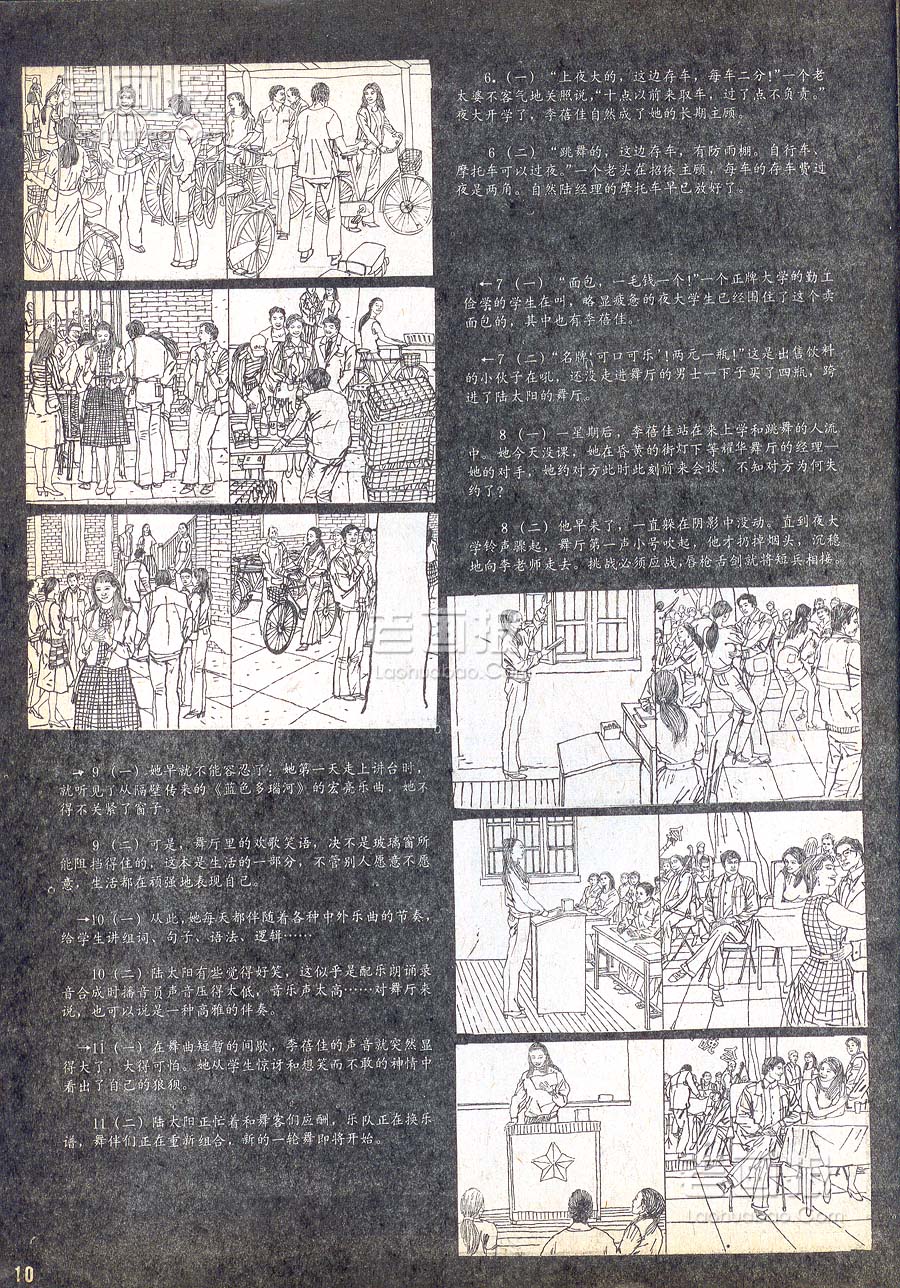 6.(一)“上夜大的，这边存车，每车二分！”一个老
太婆不客气地关照说，“十点以前来取车，过了点不负责。”
夜大开学了，李蓓佳自然成了她的长期主顾。
6(二)“跳舞的，这边存车，有防雨棚。自行车、
摩托车可以过夜。”一个老头在招徕主顾，每车的存车费过
夜是两角。自然陆经理的摩托车早已放好了。
←7(一)“面包，一毛钱一个！”一个正牌大学的勤工
俭学的学生在叫，略显疲惫的夜大学生已经围住了这个卖
面包的，其中也有李蓓佳。
←7(二)“名牌‘可口可乐’！两元一瓶！”这是出售饮料
的小伙子在吼，还没走进舞厅的男士一下子买了四瓶，跨
进了陆太阳的舞厅。
8(一)一星期后，李蓓佳站在来上学和跳舞的人流
中。她今天没课，她在昏黄的街灯下等耀华舞厅的经理—
她的对手，她约对方此时此刻前来会谈，不知对方为何失
约了？
8(二)他早来了，一直躲在阴影中没动。直到夜大
学铃声骤起，舞厅第一声小号吹起，他才扔掉烟头，沉稳
地向李老师走去。挑战必须应战，唇枪舌剑就将短兵相接。
老画报
Laohuabao.Com
→9(一)她早就不能容忍了：她第一天走上讲台时，
就听见了从隔壁传来的《蓝色多瑙河》的宏亮乐曲，她不
得不关紧了窗子。
9(二)可是，舞厅里的欢歌笑语，决不是玻璃窗所
能阻挡得住的，这本是生活的一部分，不管别人愿意不愿
意，生活都在顽强地表现自己。
→10(一)从此，她每天都伴随着各种中外乐曲的节奏，
给学生讲组词、句子、语法、逻辑……
10(二)陆太阳有些觉得好笑，这似乎是配乐朗诵录
音合成时播音员声音压得太低，音乐声太高……对舞厅来
说，也可以说是一种高雅的伴奏。
→11(一)在舞曲短暂的间歇，李蓓佳的声音就突然显
得大了，大得可怕。她从学生惊讶和想笑而不敢的神情中
看出了自己的狼狈。
11(二)陆太阳正忙着和舞客们应酬，乐队正在换乐
谱，舞伴们正在重新组合，新的一轮舞即将开始。
老画报
Laohuabao.Com
10